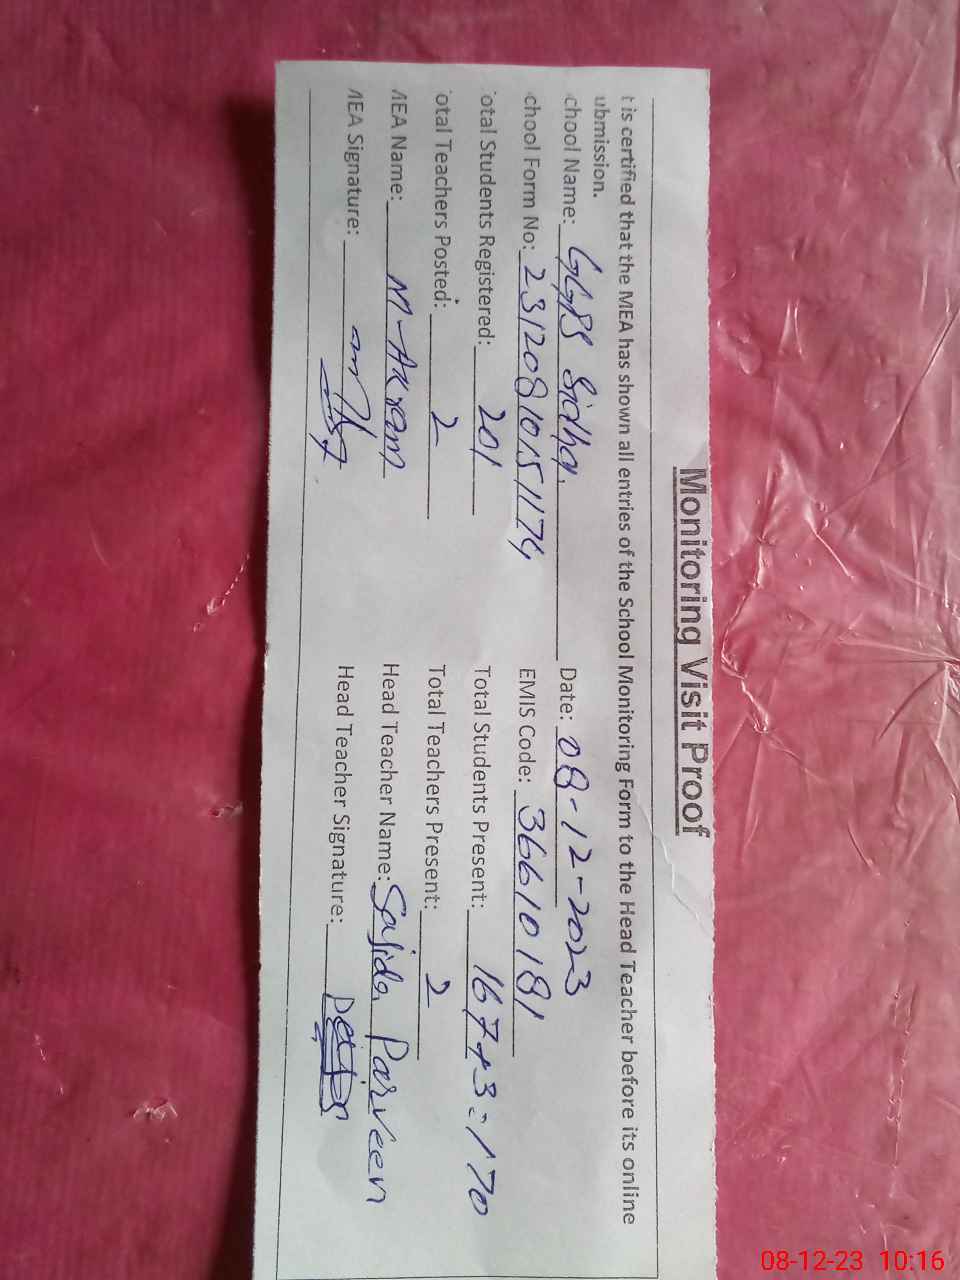 Monitoring Visit Proof
t is certified that the MEA has shown all entries of the School Monitoring Form to the Head Teacher before its online
ubmission.
chool Name: GGPS Sidha. Date: 08-12-2023
chool Form No: 23120810151174 EMIS Code: 36610181
otal Students Registered: 201 Total Students Present: 167+3=170
otal Teachers Posted: 2 Total Teachers Present: 2
MEA Name: M-Akram Head Teacher Name: Sajida Parveen
MEA Signature: Head Teacher Signature:
08-12-23 10:16